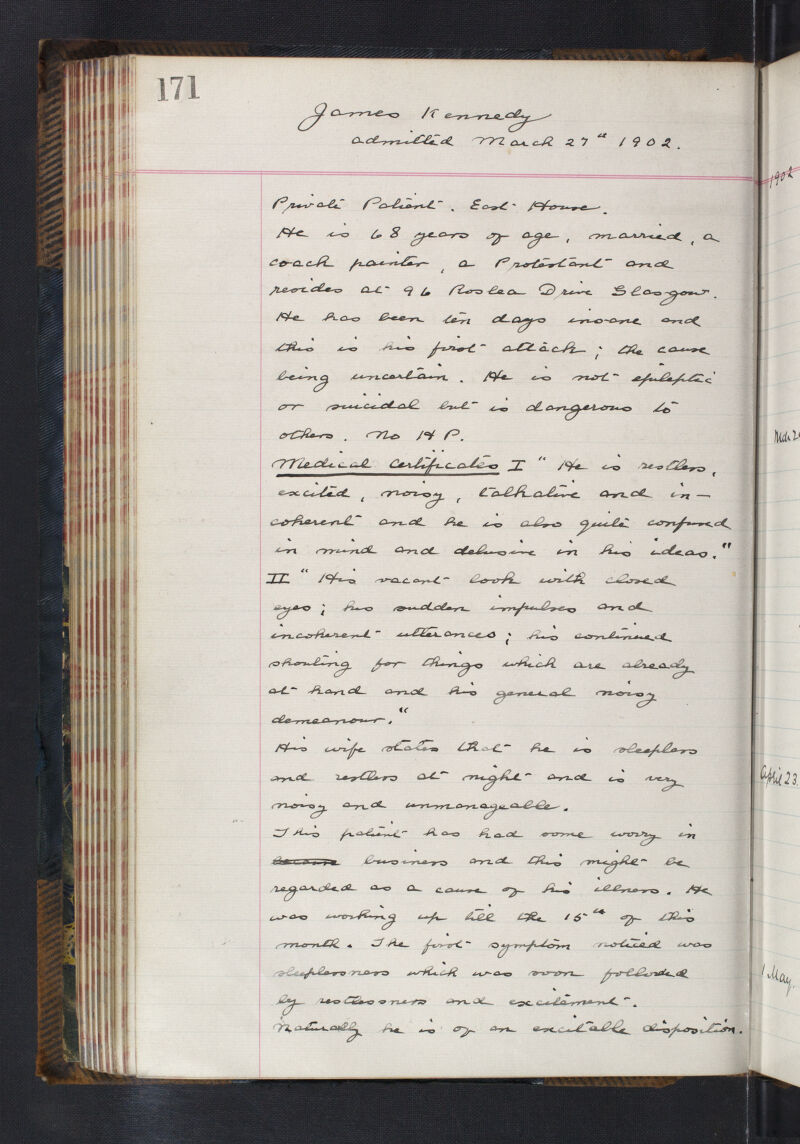 171
James Kennedy
admitted March 27th 1902.
Private Patient. East House.
He is 68 years of age, married, a
coach painter, a Protestant and
resides at 96 Roslea Drive Glasgow.
He has been ten days insane and
this is his first attack; the cause
being uncertain. He is not epileptic
or suicidal but is dangerous to
others. No H P.
Medical Certificates I " He is restless,
excited, noisy, talkative and in-
coherent and he is also quite confused
in mind and delusive in his ideas."
II " His vacant look with closed
eyes; his sudden impulses and
incoherent utterances; his continued
shouting for things which are already
at hand and his general noisy
demeanour."
His wife states that he is sleepless
and restless at night and is very
noisy and unmanageable.
This patient has had some worry in
business and this might be
regarded as a cause of his illness. He
was working up till the 15th of this
month. The first symptom noticed was
sleeplessness which was soon followed
by restlessness and excitement.
Naturally he is of an excitable disposition.
1902
April 23.
1 May.